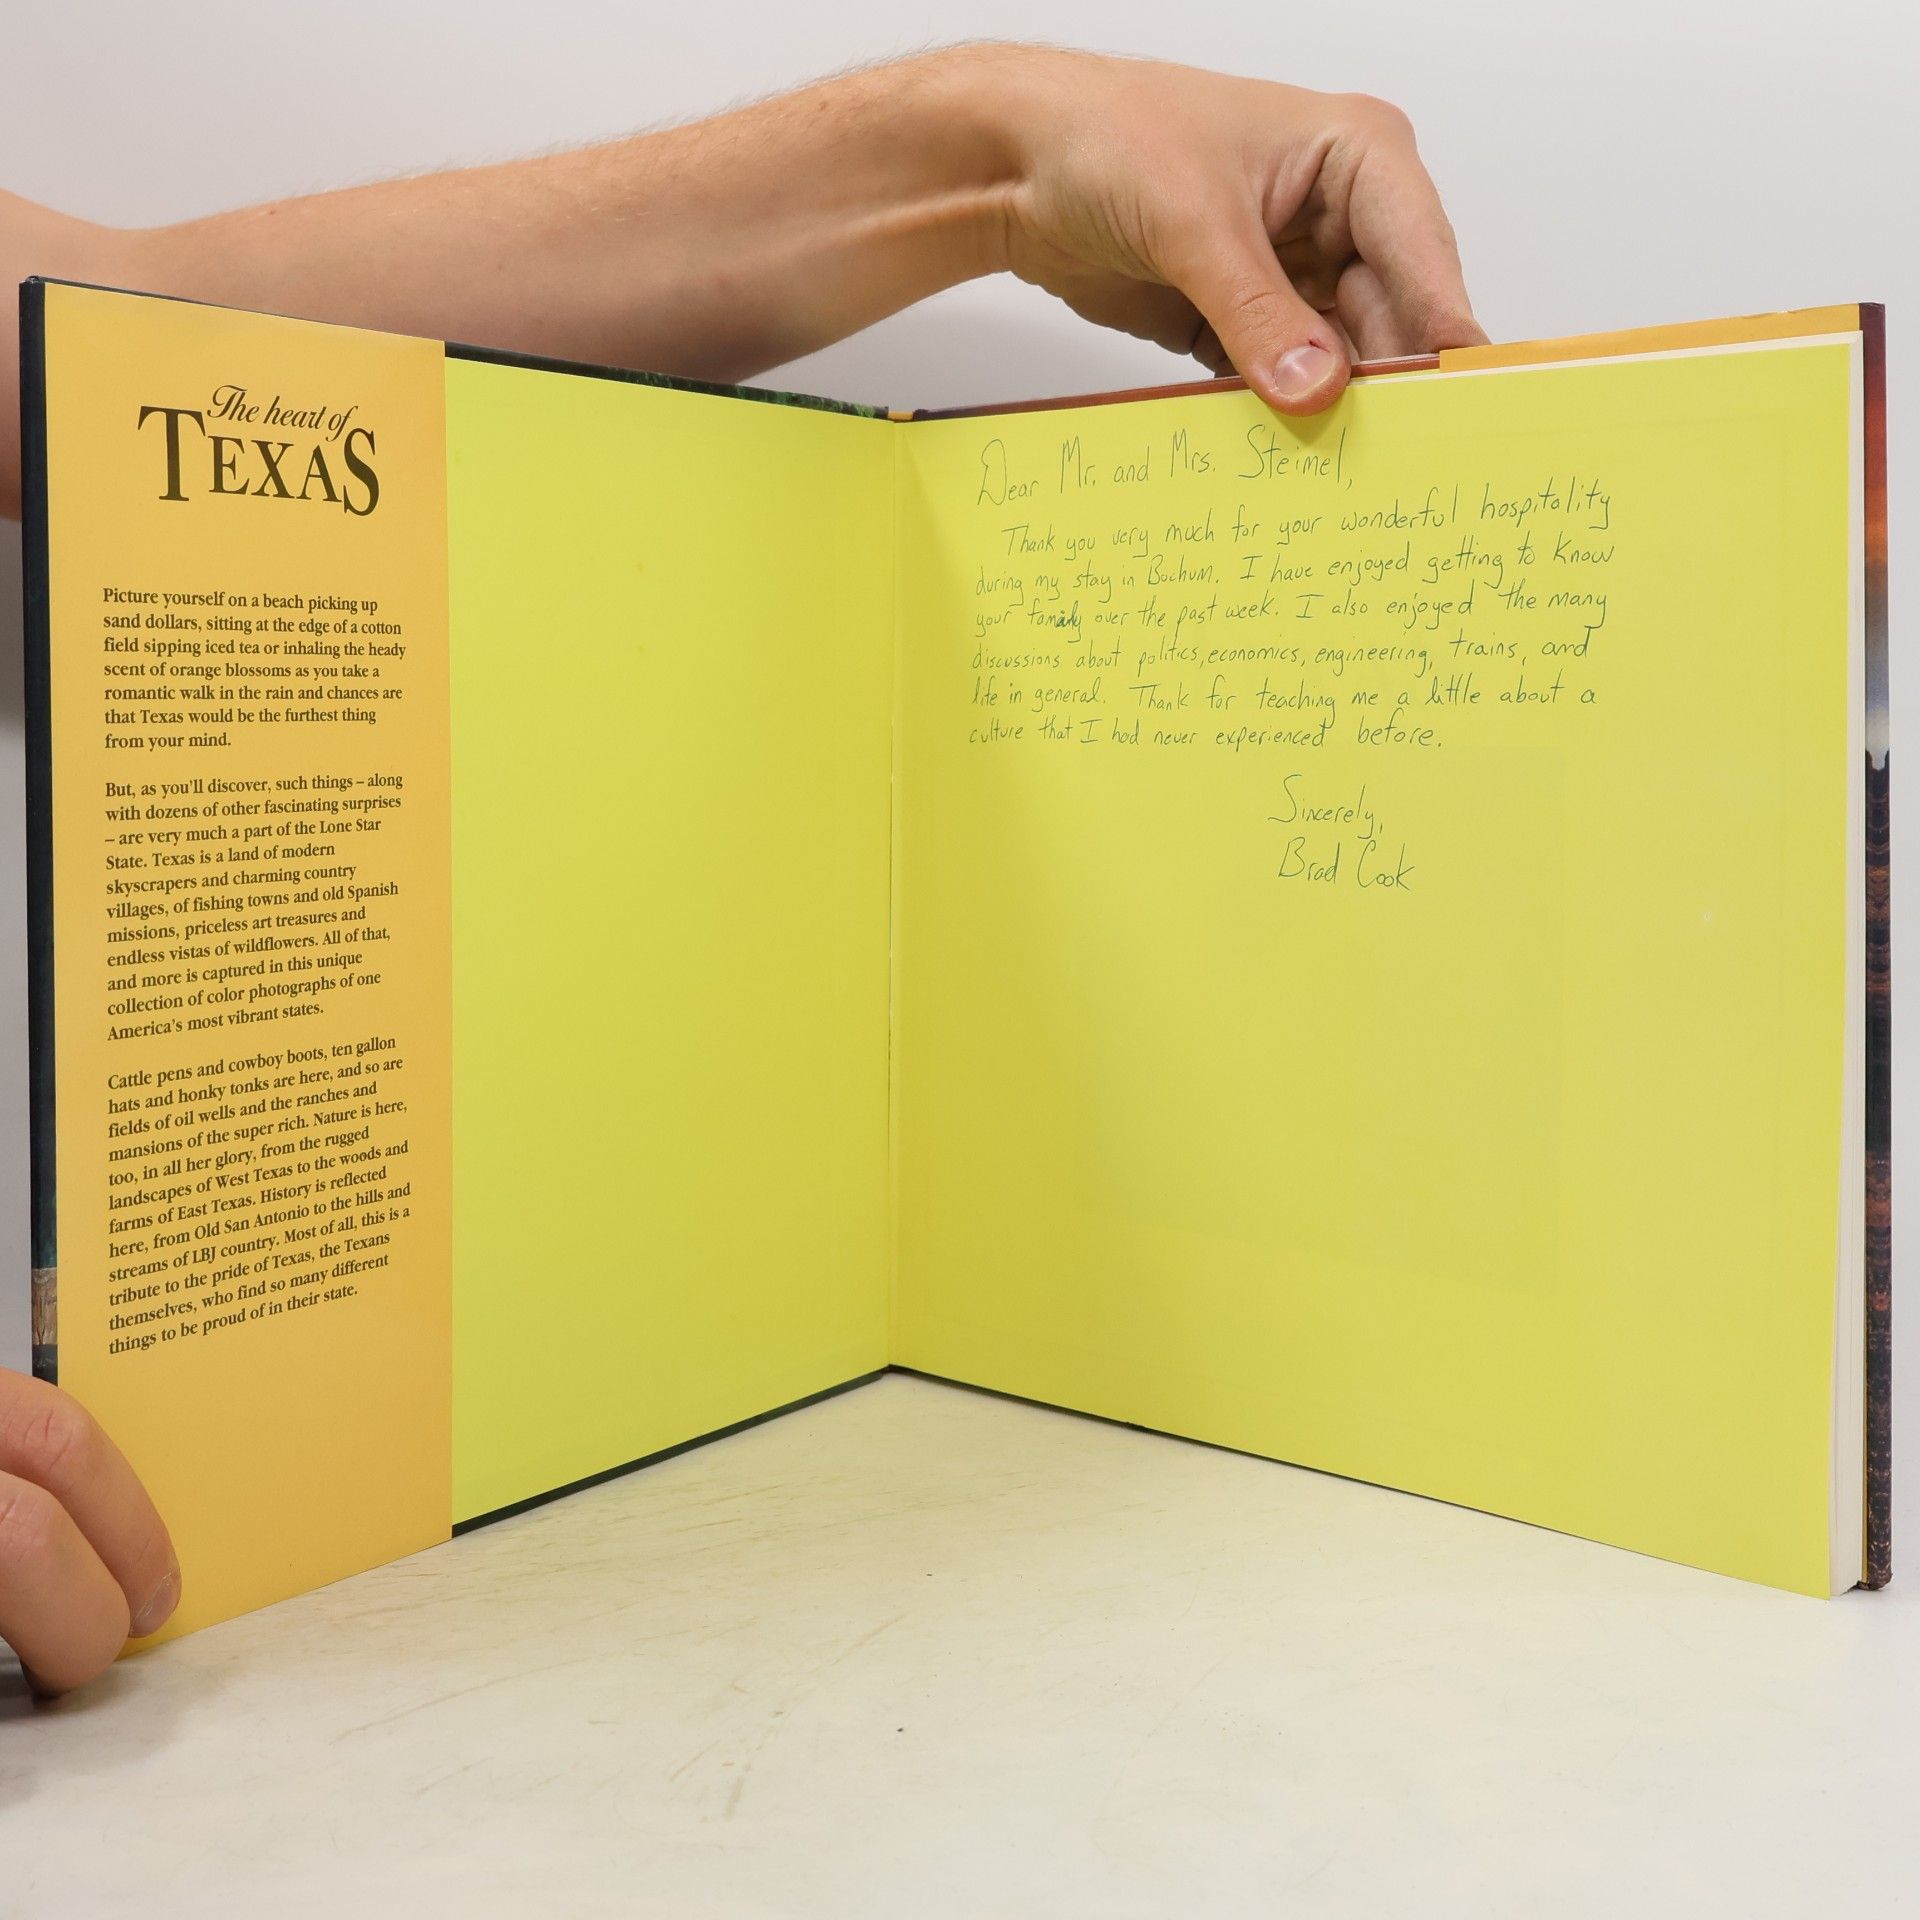 The heart of
TEXAS
Picture yourself on a beach picking up
sand dollars, sitting at the edge of a cotton
field sipping iced tea or inhaling the heady
scent of orange blossoms as you take a
romantic walk in the rain and chances are
that Texas would be the furthest thing
from your mind.
But, as you'll discover, such things – along
with dozens of other fascinating surprises
– are very much a part of the Lone Star
State. Texas is a land of modern
skyscrapers and charming country
villages, of fishing towns and old Spanish
missions, priceless art treasures and
endless vistas of wildflowers. All of that,
and more is captured in this unique
collection of color photographs of one
America's most vibrant states.
Cattle pens and cowboy boots, ten gallon
hats and honky tonks are here, and so are
fields of oil wells and the ranches and
mansions of the super rich. Nature is here,
too, in all her glory, from the rugged
landscapes of West Texas to the woods and
farms of East Texas. History is reflected
here, from Old San Antonio to the hills and
streams of LBJ country. Most of all, this is a
tribute to the pride of Texas, the Texans
themselves, who find so many different
things to be proud of in their state.
Dear Mr. and Mrs. Steimel,
Thank you very much for your wonderful hospitality
during my stay in Bochum. I have enjoyed getting to know
your family over the past week. I also enjoyed the many
discussions about politics, economics, engineering, trains, and
life in general. Thank for teaching me a little about a
culture that I had never experienced before.
Sincerely,
Brad Cook